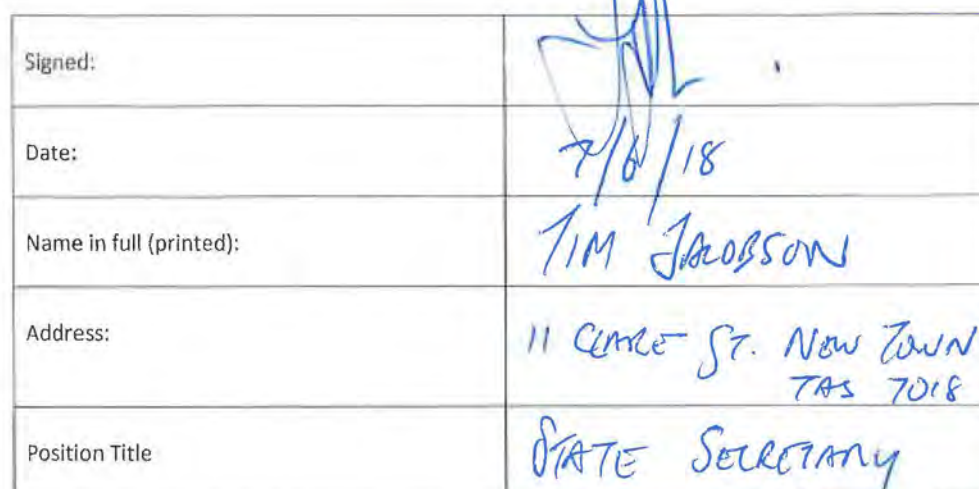 Signed:
Date: 7/6/18
Name in full (printed): TIM JACOBSON
Address: 11 CLARE ST. NEW TOWN
TAS 7018
Position Title STATE SECRETARY